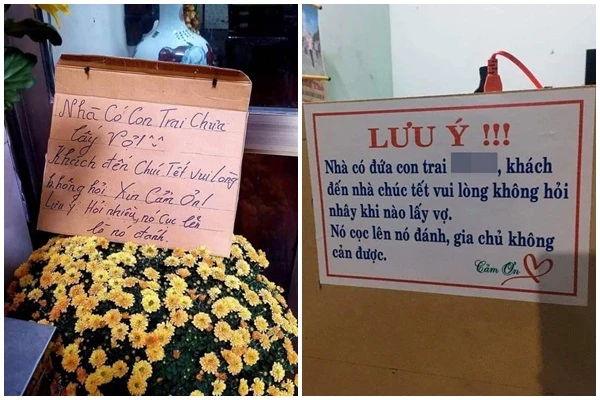 Nhà Có Con Trai Chưa
Lấy Vợ!
Khách đến Chúc Tết vui lòng
không hỏi Xin Cảm Ơn!
Lưu Ý: Hỏi nhiều, nó Cục lên
là nó đánh.
LƯU Ý !!!
Nhà có đứa con trai , khách
đến nhà chúc tết vui lòng không hỏi
nhây khi nào lấy vợ.
Nó cọc lên nó đánh, gia chủ không
cản được.
Cảm Ơn